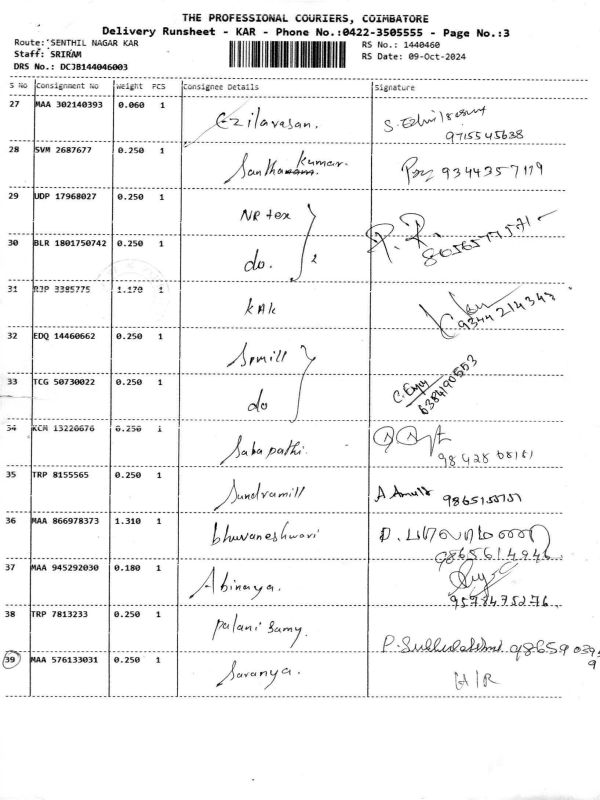 THE PROFESSIONAL COURIERS, COIMBATORE
Delivery Runsheet - KAR - Phone No.:0422-3505555 - Page No.:3
Route: SENTHIL NAGAR KAR
Staff: SRIRAM
DRS No.: DCJB144046003
RS No.: 1440460
RS Date: 09-Oct-2024
S No Consignment No Weight PCS Consignee Details Signature
27 MAA 302140393 0.060 1 Ezilavasan.
9715545638
28 SVM 2687677 0.250 1 Santha kumar.
9344357119
29 UDP 17968027 0.250 1 NR tex
30 BLR 1801750742 0.250 1 do. 2
31 RJP 3385775 1.170 1 KAK
9344214343
32 EDQ 14460662 0.250 1 Spmill
33 TCG 50730022 0.250 1 do
6384190553
34 KCM 13220676 0.250 1 Sabapathi.
35 TRP 8155565 0.250 1 Sundramill
36 MAA 866978373 1.310 1 bhuvaneshwari
9865614946
37 MAA 945292030 0.180 1 Abinaya.
9578475276
38 TRP 7813233 0.250 1 palani samy.
39 MAA 576133031 0.250 1 Saranya. H/R